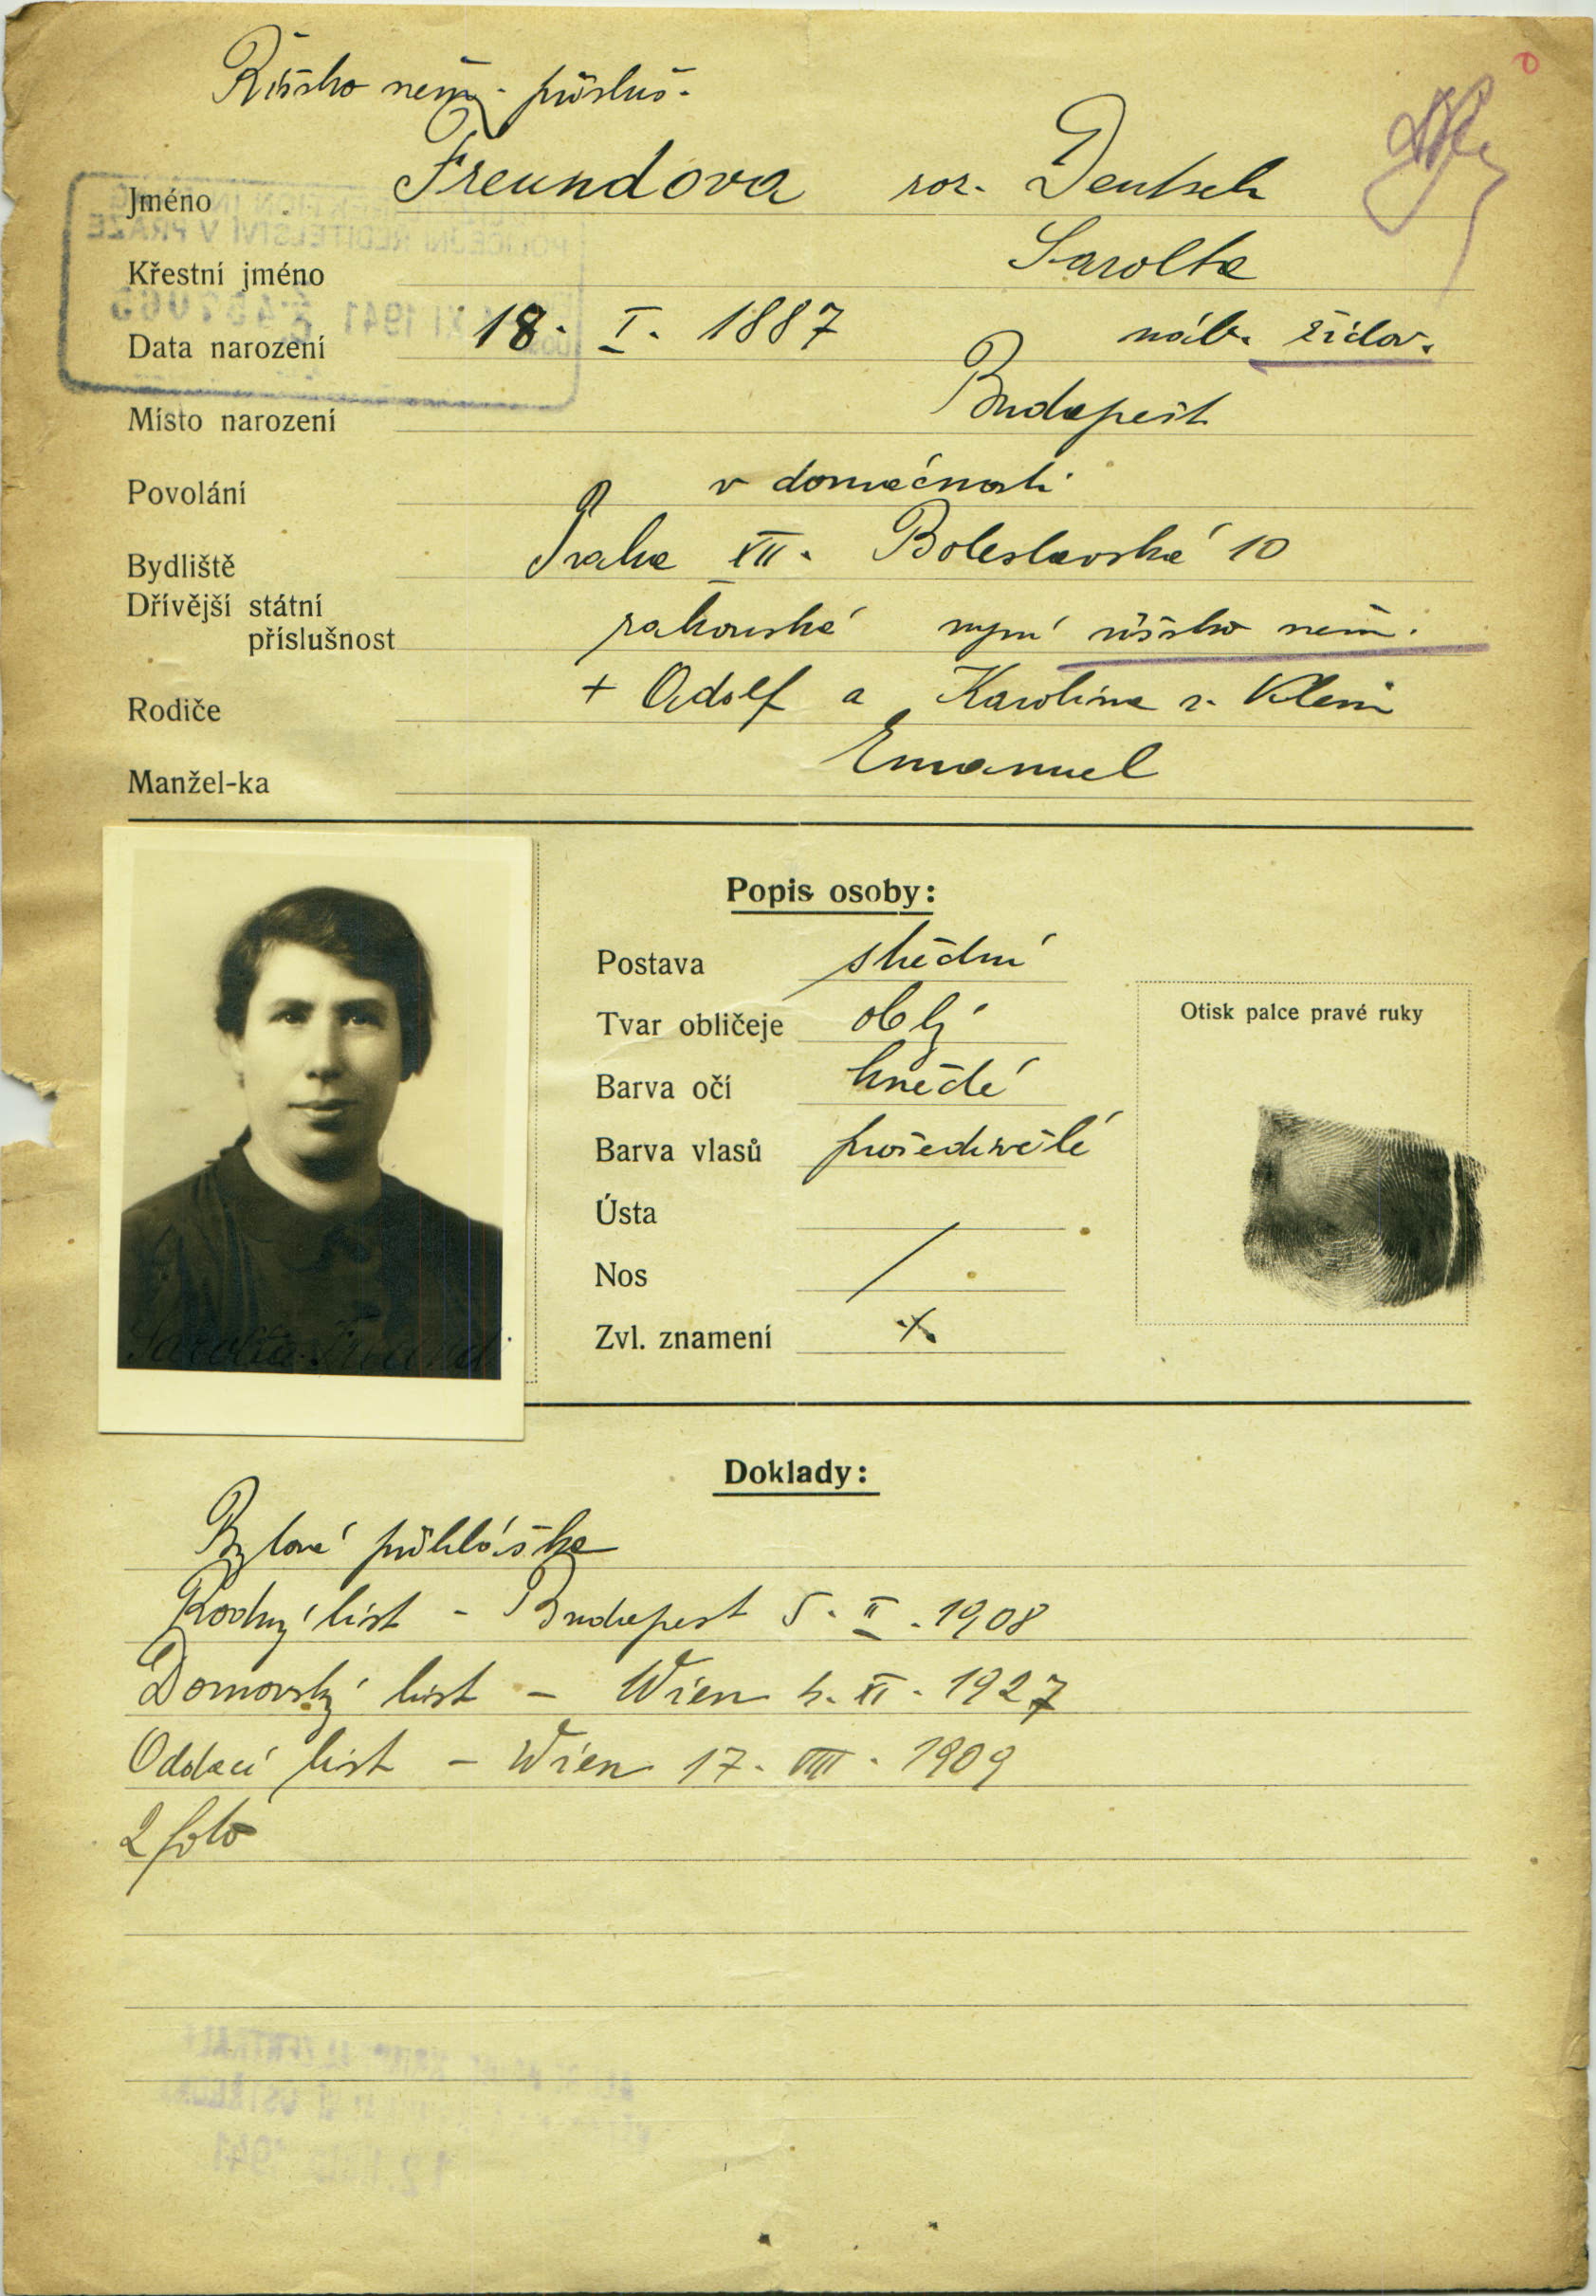 Říšsko něm. přísluš.
Jméno Freundova roz. Deutsch
Křestní jméno Sarolta
Data narození 18. I. 1887 náb. židov.
Místo narození Budapešt
Povolání v domácnosti
Bydliště Praha XII. Boleslavská 10
Dřívější státní
příslušnost rakouská nyní říšsko něm.
Rodiče + Adolf a Karolina r. Klein
Manžel-ka Emanuel
Popis osoby:
Postava střední
Tvar obličeje oblý
Barva očí hnědé
Barva vlasů prošedivělé
Ústa
Nos
Zvl. znamení
Otisk palce pravé ruky
Sarolta Freund
Doklady:
Bytová přihláška
Rodný list - Budapest 5. II. 1908
Domovský list - Wien 4. XI. 1927
Oddací list - Wien 17. VIII. 1909
2 foto